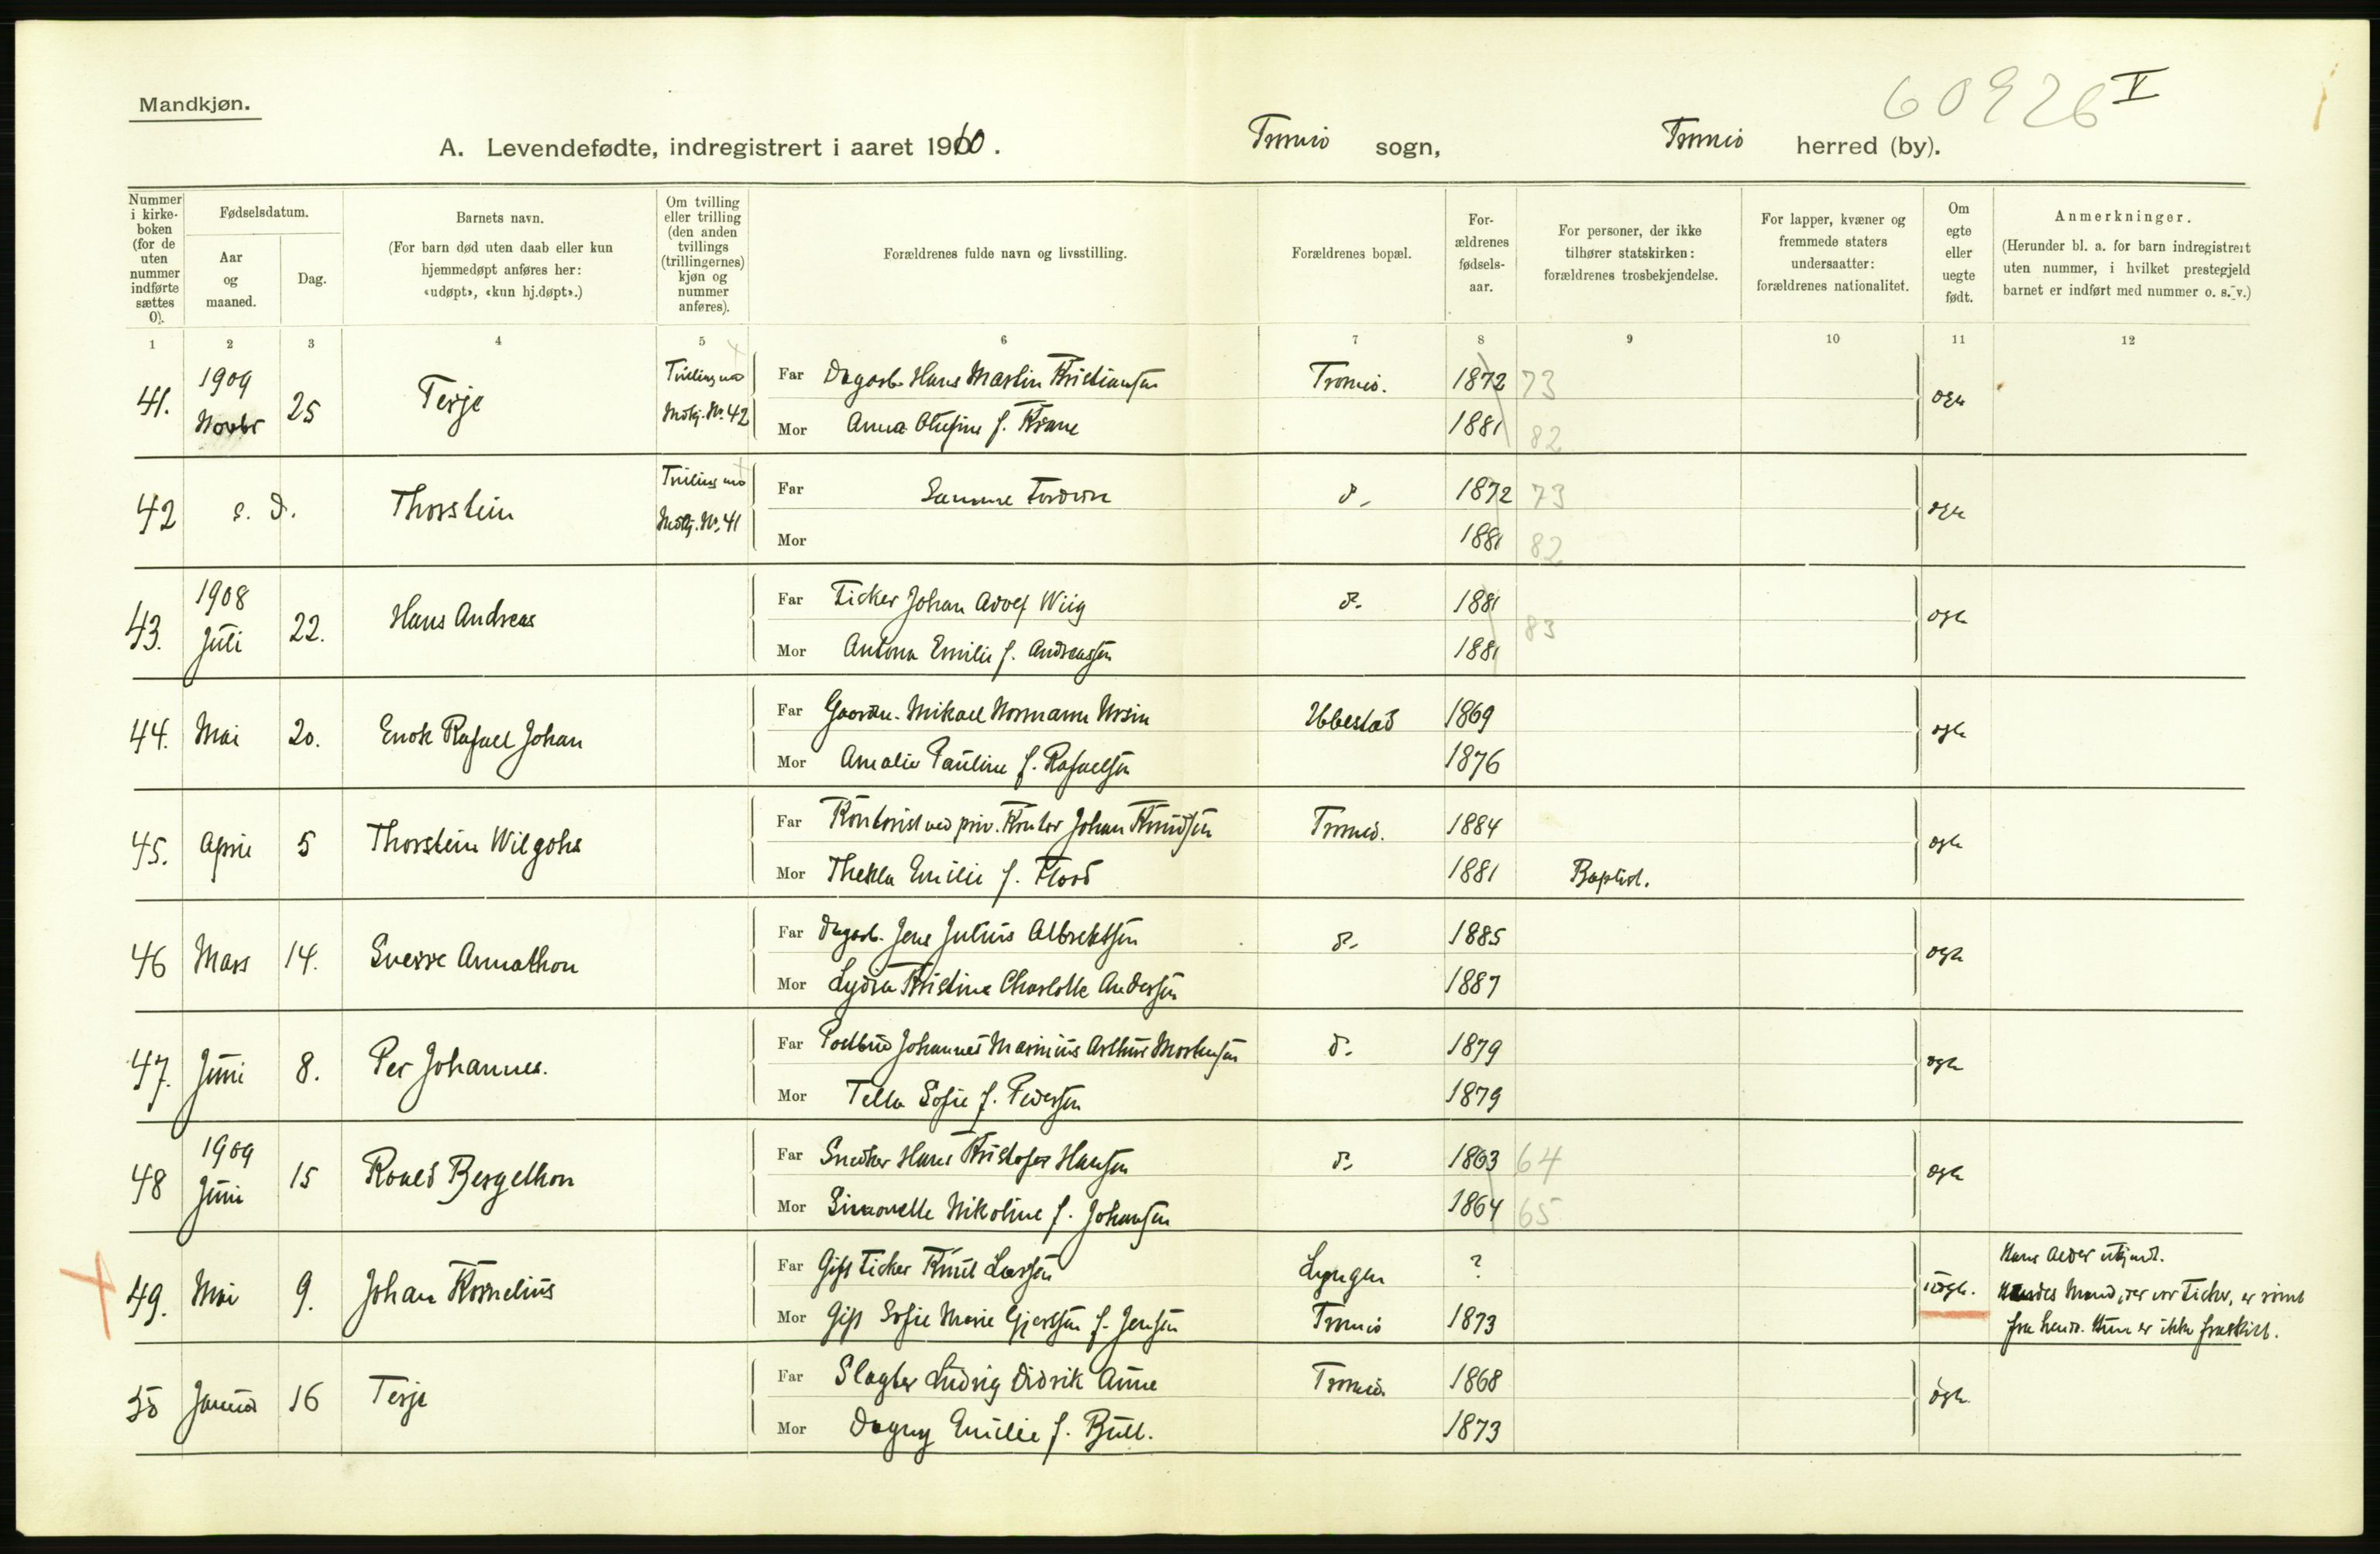 60926 V
Mandkjøn.
A. Levendefødte, indregistrert i aaret 1910. Tromsø sogn, Tromsø herred (by).
Nummer i kirkeboken (for de uten nummer indførte sættes 0).
Fødselsdatum.
Aar og maaned.
Dag.
Barnets navn.
(For barn død uten daab eller kun hjemmedøpt anføres her: «udøpt», «kun hj.døpt».)
Om tvilling eller trilling (den anden tvillings (trillingernes) kjøn og nummer anføres).
Forældrenes fulde navn og livsstilling.
Forældrenes bopæl.
Forældrenes fødselsaar.
For personer, der ikke tilhører statskirken: forældrenes trosbekjendelse.
For lapper, kvæner og fremmede staters undersaatter: forældrenes nationalitet.
Om egte eller uegte født.
Anmerkninger.
(Herunder bl. a. for barn indregistrert uten nummer, i hvilket prestegjeld barnet er indført med nummer o. s. v.)
1 2 3 4 5 6 7 8 9 10 11 12
41. 1909 Novbr 25 Terje Tvilling med Mdkj. Nr. 42 Far Dagarb. Hans Martin Kristiansen Tromsø. 1872 73 egte
Mor Anna Olufine f. Krane 1881 82
42 s. d. Thorstein Tvilling med Mdkj. Nr. 41 Far Samme Foræ d. 1872 73 egte
Mor 1881 82
43. 1908 Juli 22. Hans Andreas Far Fisker Johan Adolf Wiig d. 1881 egte
Mor Antona Emilie f. Andreassen 1881 83
44. Mai 20. Enok Rafael Johan Far Gaardbr. Mikael Normann Ibbestad 1869 egte
Mor Amalie Pauline f. Rafaelsen 1876
45. April 5 Thorstein Wilgohs Far Kontorist ved priv. Kontor Johan Knudsen Tromsø. 1884 egte
Mor Thekla Emilie f. Flood 1881 Baptist.
46 Mars 14. Sverre Annathon Far Dagarb. Jens Julius Albrektsen d. 1885 egte
Mor Lydia Kristine Charlotte Andersen 1887
47. Juni 8. Per Johannes. Far Postbud Johannes Marinius Arthur Mortensen d. 1879 egte
Mor Tella Sofie f. Pedersen 1879
48 1909 Juni 15 Roald Bergethon Far Snedker Hans Kristofer Hansen d. 1863 64 egte
Mor Simonette Nikoline f. Johansen 1864 65
49. Mai 9. Johan Kornelius Far Gift Fisker Knut Larsen Lyngen ? uegte. Hans Alder ukjendt.
Mor Gift Sofie Marie Gjertsen f. Jensen Tromsø 1873 Hendes Mand, der var Fisker, er rømt
fra hende. Hun er ikke fraskilt.
50 Januar 16 Terje Far Slagter Ludvig Didrik Aune Tromsø 1868 egte
Mor Dagny Emilie f. Bull. 1873